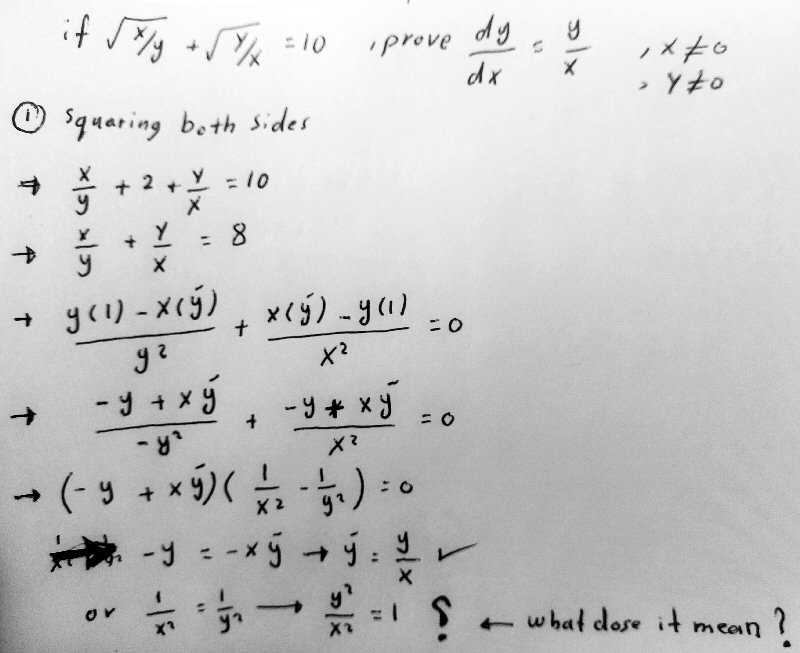 if √x/y + √y/x = 10 , prove dy/dx = y/x , x ≠ 0
, y ≠ 0
① Squaring both sides
→ x/y + 2 + y/x = 10
→ x/y + y/x = 8
→ (y(1) - x(ý))/y² + (x(ý) - y(1))/x² = 0
→ (-y + xý)/(-y²) + (-y + xý)/x² = 0
→ (-y + xý)(1/x² - 1/y²) = 0
-y = -xý → ý = y/x ✓
or 1/x² = 1/y² → y²/x² = 1 ? ← what dose it mean ?